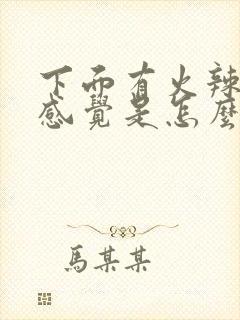 下面有火辣
感覺是怎麼
馬某某